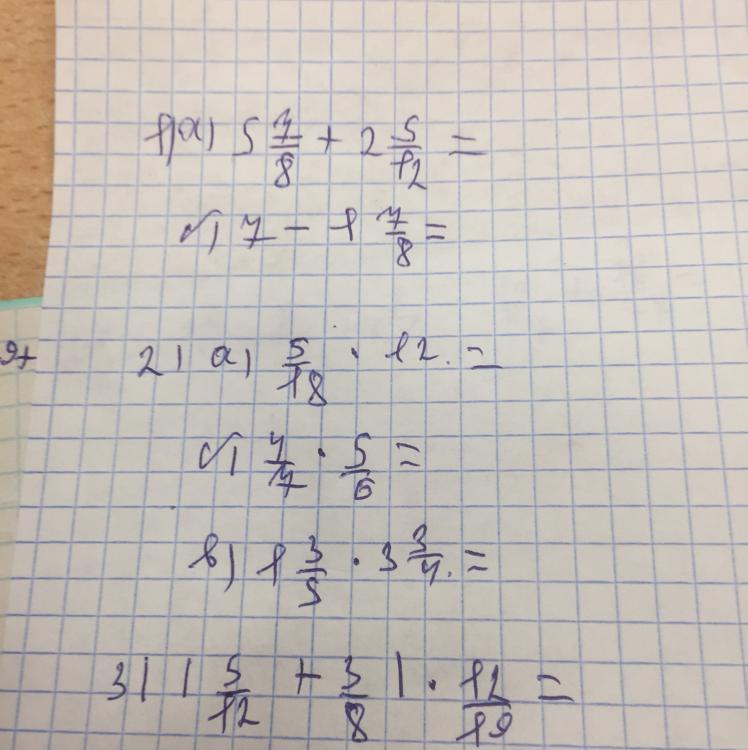 1) а) 5 7/8 + 2 5/12 =
б) 7 - 1 7/8 =
2) а) 5/18 · 12 =
б) 4/7 · 5/6 =
в) 1 3/5 · 3 3/4 =
3) (5/12 + 3/8) · 12/19 =